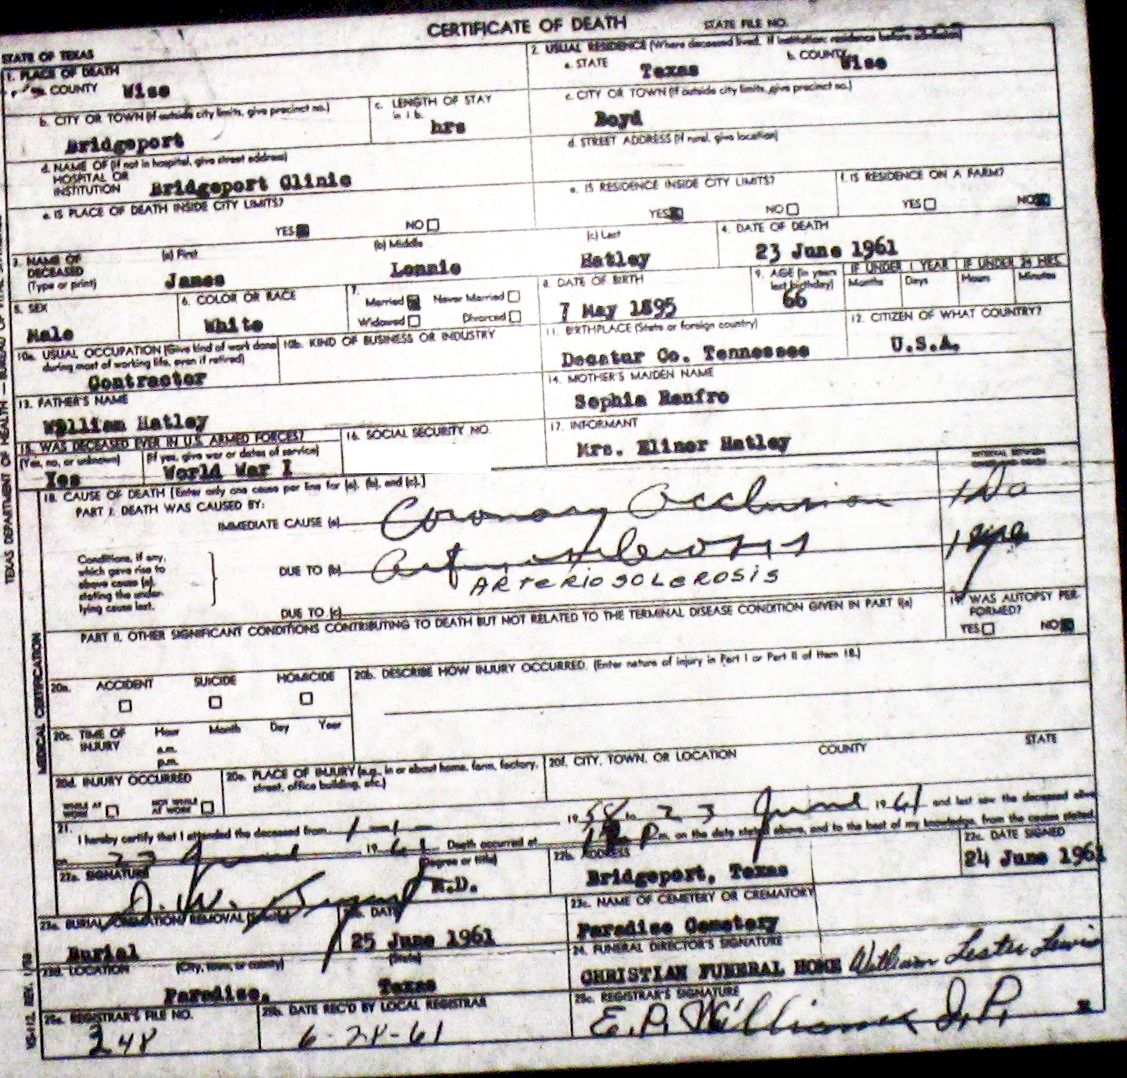 CERTIFICATE OF DEATH
STATE FILE NO.
STATE OF TEXAS
1. PLACE OF DEATH
a. COUNTY Wise
2. USUAL RESIDENCE (Where deceased lived. If institution: residence before admission)
a. STATE Texas
b. COUNTY Wise
b. CITY OR TOWN (If outside city limits, give precinct no.)
Bridgeport
c. LENGTH OF STAY in 1 b.
hrs
c. CITY OR TOWN (If outside city limits, give precinct no.)
Boyd
d. NAME OF (If not in hospital, give street address)
HOSPITAL OR
INSTITUTION Bridgeport Clinic
d. STREET ADDRESS (If rural, give location)
e. IS PLACE OF DEATH INSIDE CITY LIMITS?
YES NO
e. IS RESIDENCE INSIDE CITY LIMITS?
YES NO
f. IS RESIDENCE ON A FARM?
YES NO
3. NAME OF DECEASED (Type or print)
(a) First (b) Middle (c) Last
James Lonnie Hatley
4. DATE OF DEATH
23 June 1961
5. SEX
Male
6. COLOR OR RACE
White
7.
Married Never Married
Widowed Divorced
8. DATE OF BIRTH
7 May 1895
9. AGE (In years last birthday)
66
IF UNDER 1 YEAR
Months Days
IF UNDER 24 HRS.
Hours Minutes
10a. USUAL OCCUPATION (Give kind of work done during most of working life, even if retired)
Contractor
10b. KIND OF BUSINESS OR INDUSTRY
11. BIRTHPLACE (State or foreign country)
Decatur Co. Tennessee
12. CITIZEN OF WHAT COUNTRY?
U.S.A.
13. FATHER'S NAME
William Hatley
14. MOTHER'S MAIDEN NAME
Sophia Renfro
15. WAS DECEASED EVER IN U.S. ARMED FORCES?
(Yes, no, or unknown) (If yes, give war or dates of service)
Yes World War I
16. SOCIAL SECURITY NO.
17. INFORMANT
Mrs. Elinor Hatley
18. CAUSE OF DEATH [Enter only one cause per line for (a), (b), and (c).]
INTERVAL BETWEEN
PART I. DEATH WAS CAUSED BY:
IMMEDIATE CAUSE (a) Coronary Occlusion
Conditions, if any, which gave rise to above cause (a), stating the underlying cause last.
DUE TO (b)
ARTERIOSCLEROSIS
DUE TO (c)
PART II. OTHER SIGNIFICANT CONDITIONS CONTRIBUTING TO DEATH BUT NOT RELATED TO THE TERMINAL DISEASE CONDITION GIVEN IN PART I(a)
19. WAS AUTOPSY PERFORMED?
YES NO
20a. ACCIDENT SUICIDE HOMICIDE
20b. DESCRIBE HOW INJURY OCCURRED. (Enter nature of injury in Part I or Part II of Item 18.)
20c. TIME OF INJURY
Hour Month Day Year
a.m.
p.m.
20d. INJURY OCCURRED
WHILE AT WORK NOT WHILE AT WORK
20e. PLACE OF INJURY (e.g., in or about home, farm, factory, street, office building, etc.)
20f. CITY, TOWN, OR LOCATION COUNTY STATE
21. I hereby certify that I attended the deceased from 1-1- 1958 to 23 June 1961 and last saw the deceased alive
on 23 June 1961 Death occurred at p m. on the date stated above, and to the best of my knowledge, from the causes stated.
22a. SIGNATURE (Degree or title)
M.D.
22b. ADDRESS
Bridgeport, Texas
22c. DATE SIGNED
24 June 1961
23a. BURIAL, CREMATION, REMOVAL
Burial
23b. DATE
25 June 1961
23c. NAME OF CEMETERY OR CREMATORY
Paradise Cemetery
23d. LOCATION (City, town, or county) (State)
Paradise, Texas
24. FUNERAL DIRECTOR'S SIGNATURE
CHRISTIAN FUNERAL HOME William Lester Lewis
25a. REGISTRAR'S FILE NO.
248
25b. DATE REC'D BY LOCAL REGISTRAR
6-28-61
25c. REGISTRAR'S SIGNATURE
E.P. Williams J.P.
MEDICAL CERTIFICATION
VS-112, REV. 1/58